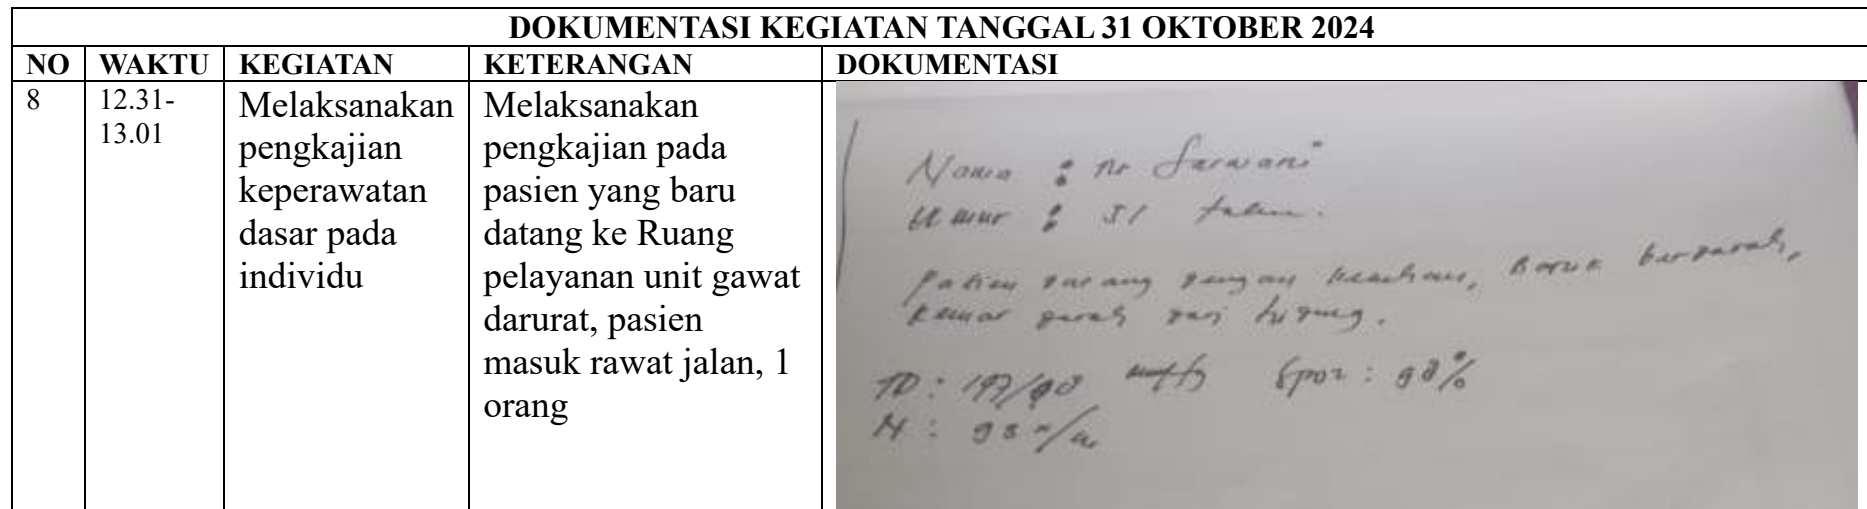 DOKUMENTASI KEGIATAN TANGGAL 31 OKTOBER 2024
NO WAKTU KEGIATAN KETERANGAN DOKUMENTASI
8
12.31-
13.01
Melaksanakan
pengkajian
keperawatan
dasar pada
individu
Melaksanakan
pengkajian pada
pasien yang baru
datang ke Ruang
pelayanan unit gawat
darurat, pasien
masuk rawat jalan, 1
orang
Nama :
Umur : 51 tahun.
Pasien datang dengan keluhan, Batuk berdarah,
keluar darah dari hidung.
TD : Spo2 : 98%
N : 93 x/m